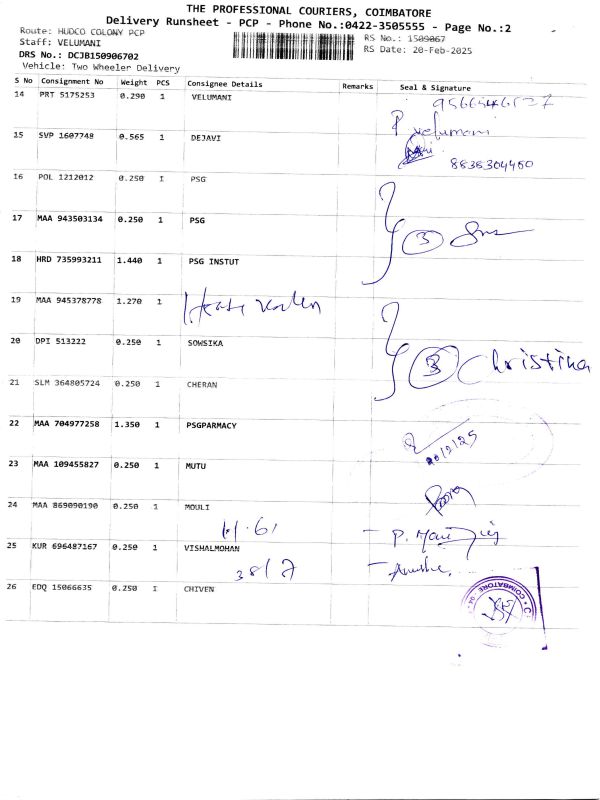 THE PROFESSIONAL COURIERS, COIMBATORE
Delivery Runsheet - PCP - Phone No.:0422-3505555 - Page No.:2
Route: HUDCO COLONY PCP
RS No.: 1509067
Staff: VELUMANI
RS Date: 20-Feb-2025
DRS No.: DCJB150906702
Vehicle: Two Wheeler Delivery
S No Consignment No Weight PCS Consignee Details Remarks Seal & Signature
14 PRT 5175253 0.290 1 VELUMANI
P velumani
15 SVP 1607748 0.565 1 DEJAVI
8838304460
16 POL 1212012 0.250 1 PSG
17 MAA 943503134 0.250 1 PSG
3
18 HRD 735993211 1.440 1 PSG INSTUT
19 MAA 945378778 1.270 1
20 DPI 513222 0.250 1 SOWSIKA
3 Christina
21 SLM 364805724 0.250 1 CHERAN
22 MAA 704977258 1.350 1 PSGPARMACY
20/2/25
23 MAA 109455827 0.250 1 MUTU
24 MAA 869090190 0.250 1 MOULI
25 KUR 696487167 0.250 1 VISHALMOHAN
38/7
26 EDQ 15066635 0.250 1 CHIVEN
COIMBATORE